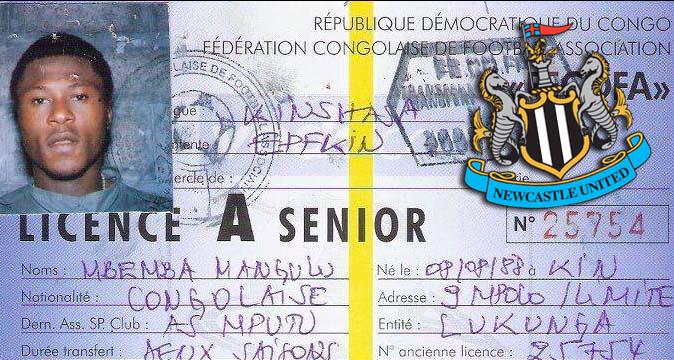 RÉPUBLIQUE DÉMOCRATIQUE DU CONGO
FÉDÉRATION CONGOLAISE DE FOOTBALL ASSOCIATION
KINSHASA
EPFKIN
NEWCASTLE UNITED
LICENCE A SENIOR
N° 25754
Noms : MBEMBA MANGULU
Né le : 08/08/88 à KIN
Nationalité : CONGOLAISE
Adresse : 9 MPOLO / LIMITE
Dern. Ass. SP. Club : AS MPUTU
Entité : LUKUNGA
Durée transfert : DEUX SAISONS
N° ancienne licence : 25754